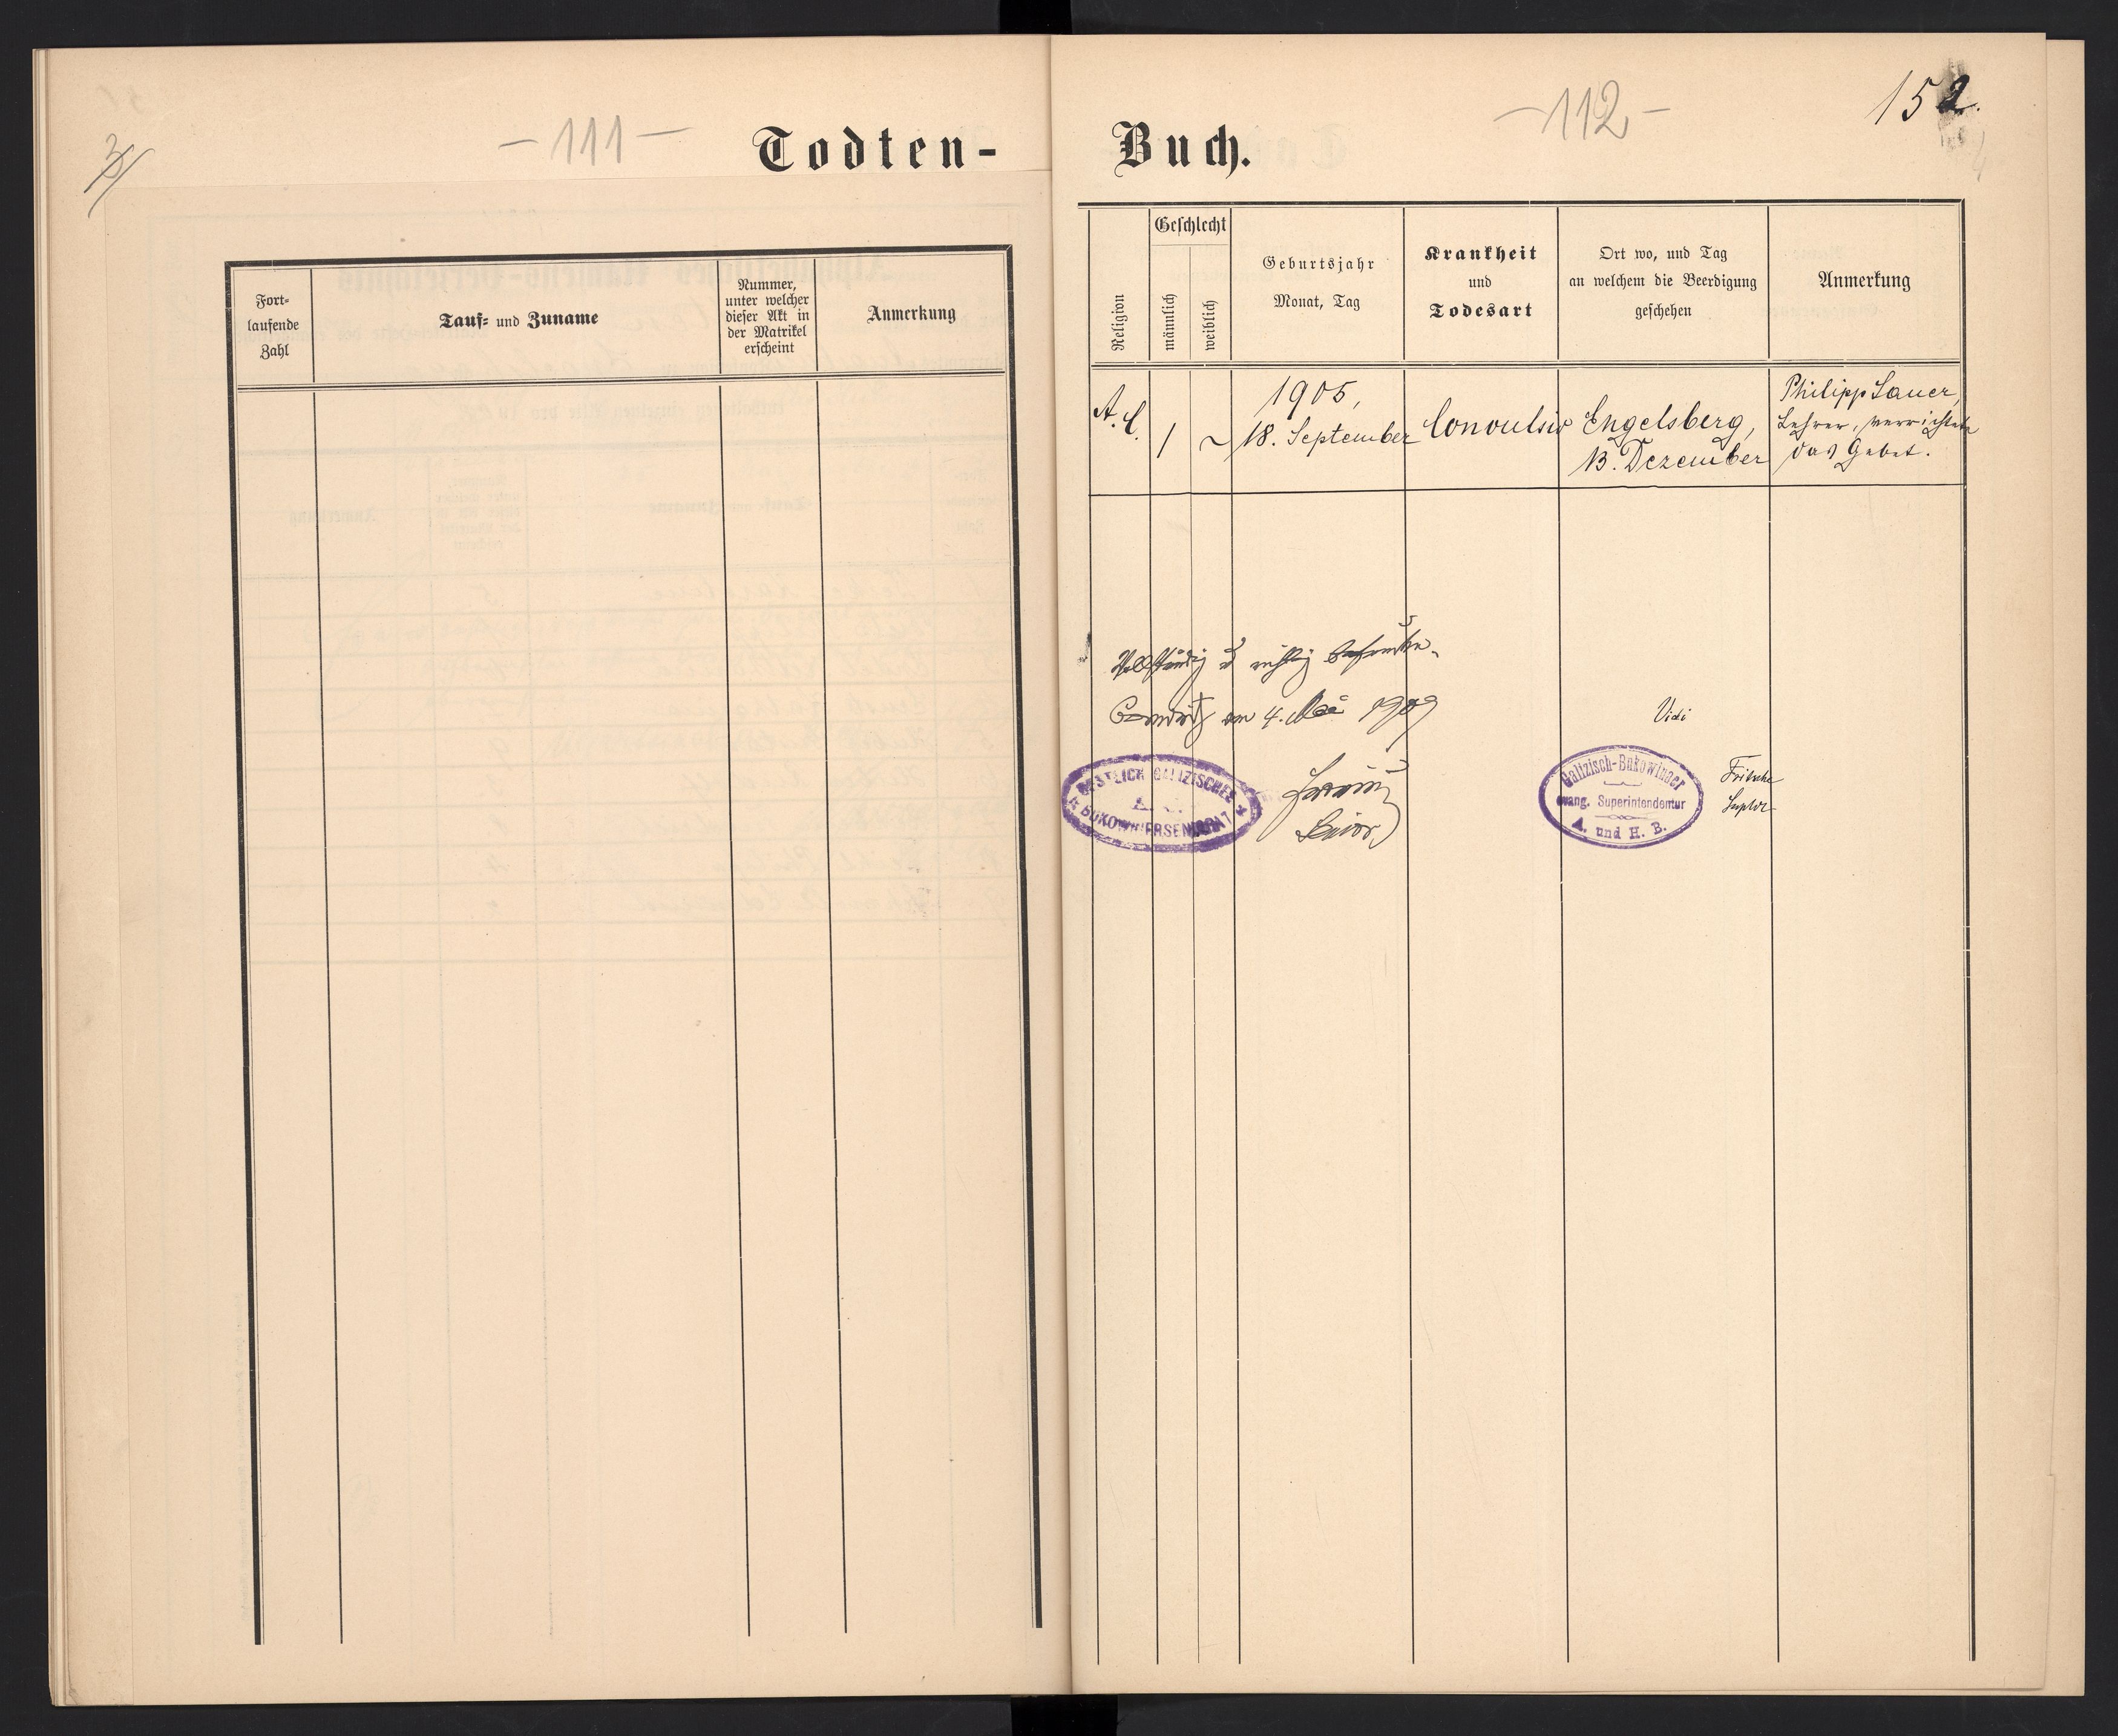 -111-
Todten-
Fort-
laufende
Zahl
Tauf- und Zuname
Nummer,
unter welcher
dieser Akt in
der Matrikel
erscheint
Anmerkung
-112-
152.
Buch.
Religion
Geschlecht
männlich
weiblich
Geburtsjahr
Monat, Tag
Krankheit
und
Todesart
Ort wo, und Tag
an welchem die Beerdigung
geschehen
Anmerkung
A. C.
1
~
1905,
18. September
Convulsio
Engelsberg,
13. Dezember
Philipp Lauer,
Lehrer, verrichtete
das Gebet.
Vollständig u richtig befunden.
am 4. Mai 1909
Vidi
OESTLICH GALIZISCHES
BUKOWINERSENIORAT
Senior
Galizisch-Bukowinaer
evang. Superintendentur
A. und H. B.
Fritsche
Suptdt